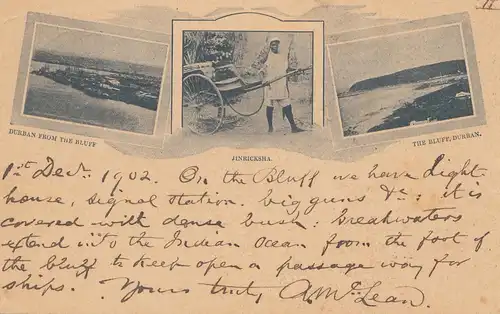 11
DURBAN FROM THE BLUFF
JINRICKSHA.
THE BLUFF, DURBAN.
1st Decr. 1902. On the Bluff we have Light-
house, signal station, big guns &c: it is
covered with dense bush: breakwaters
extend into the Indian Ocean from the foot of
the bluff to keep open a passage way for
ships. Yours truly, A. McLean.